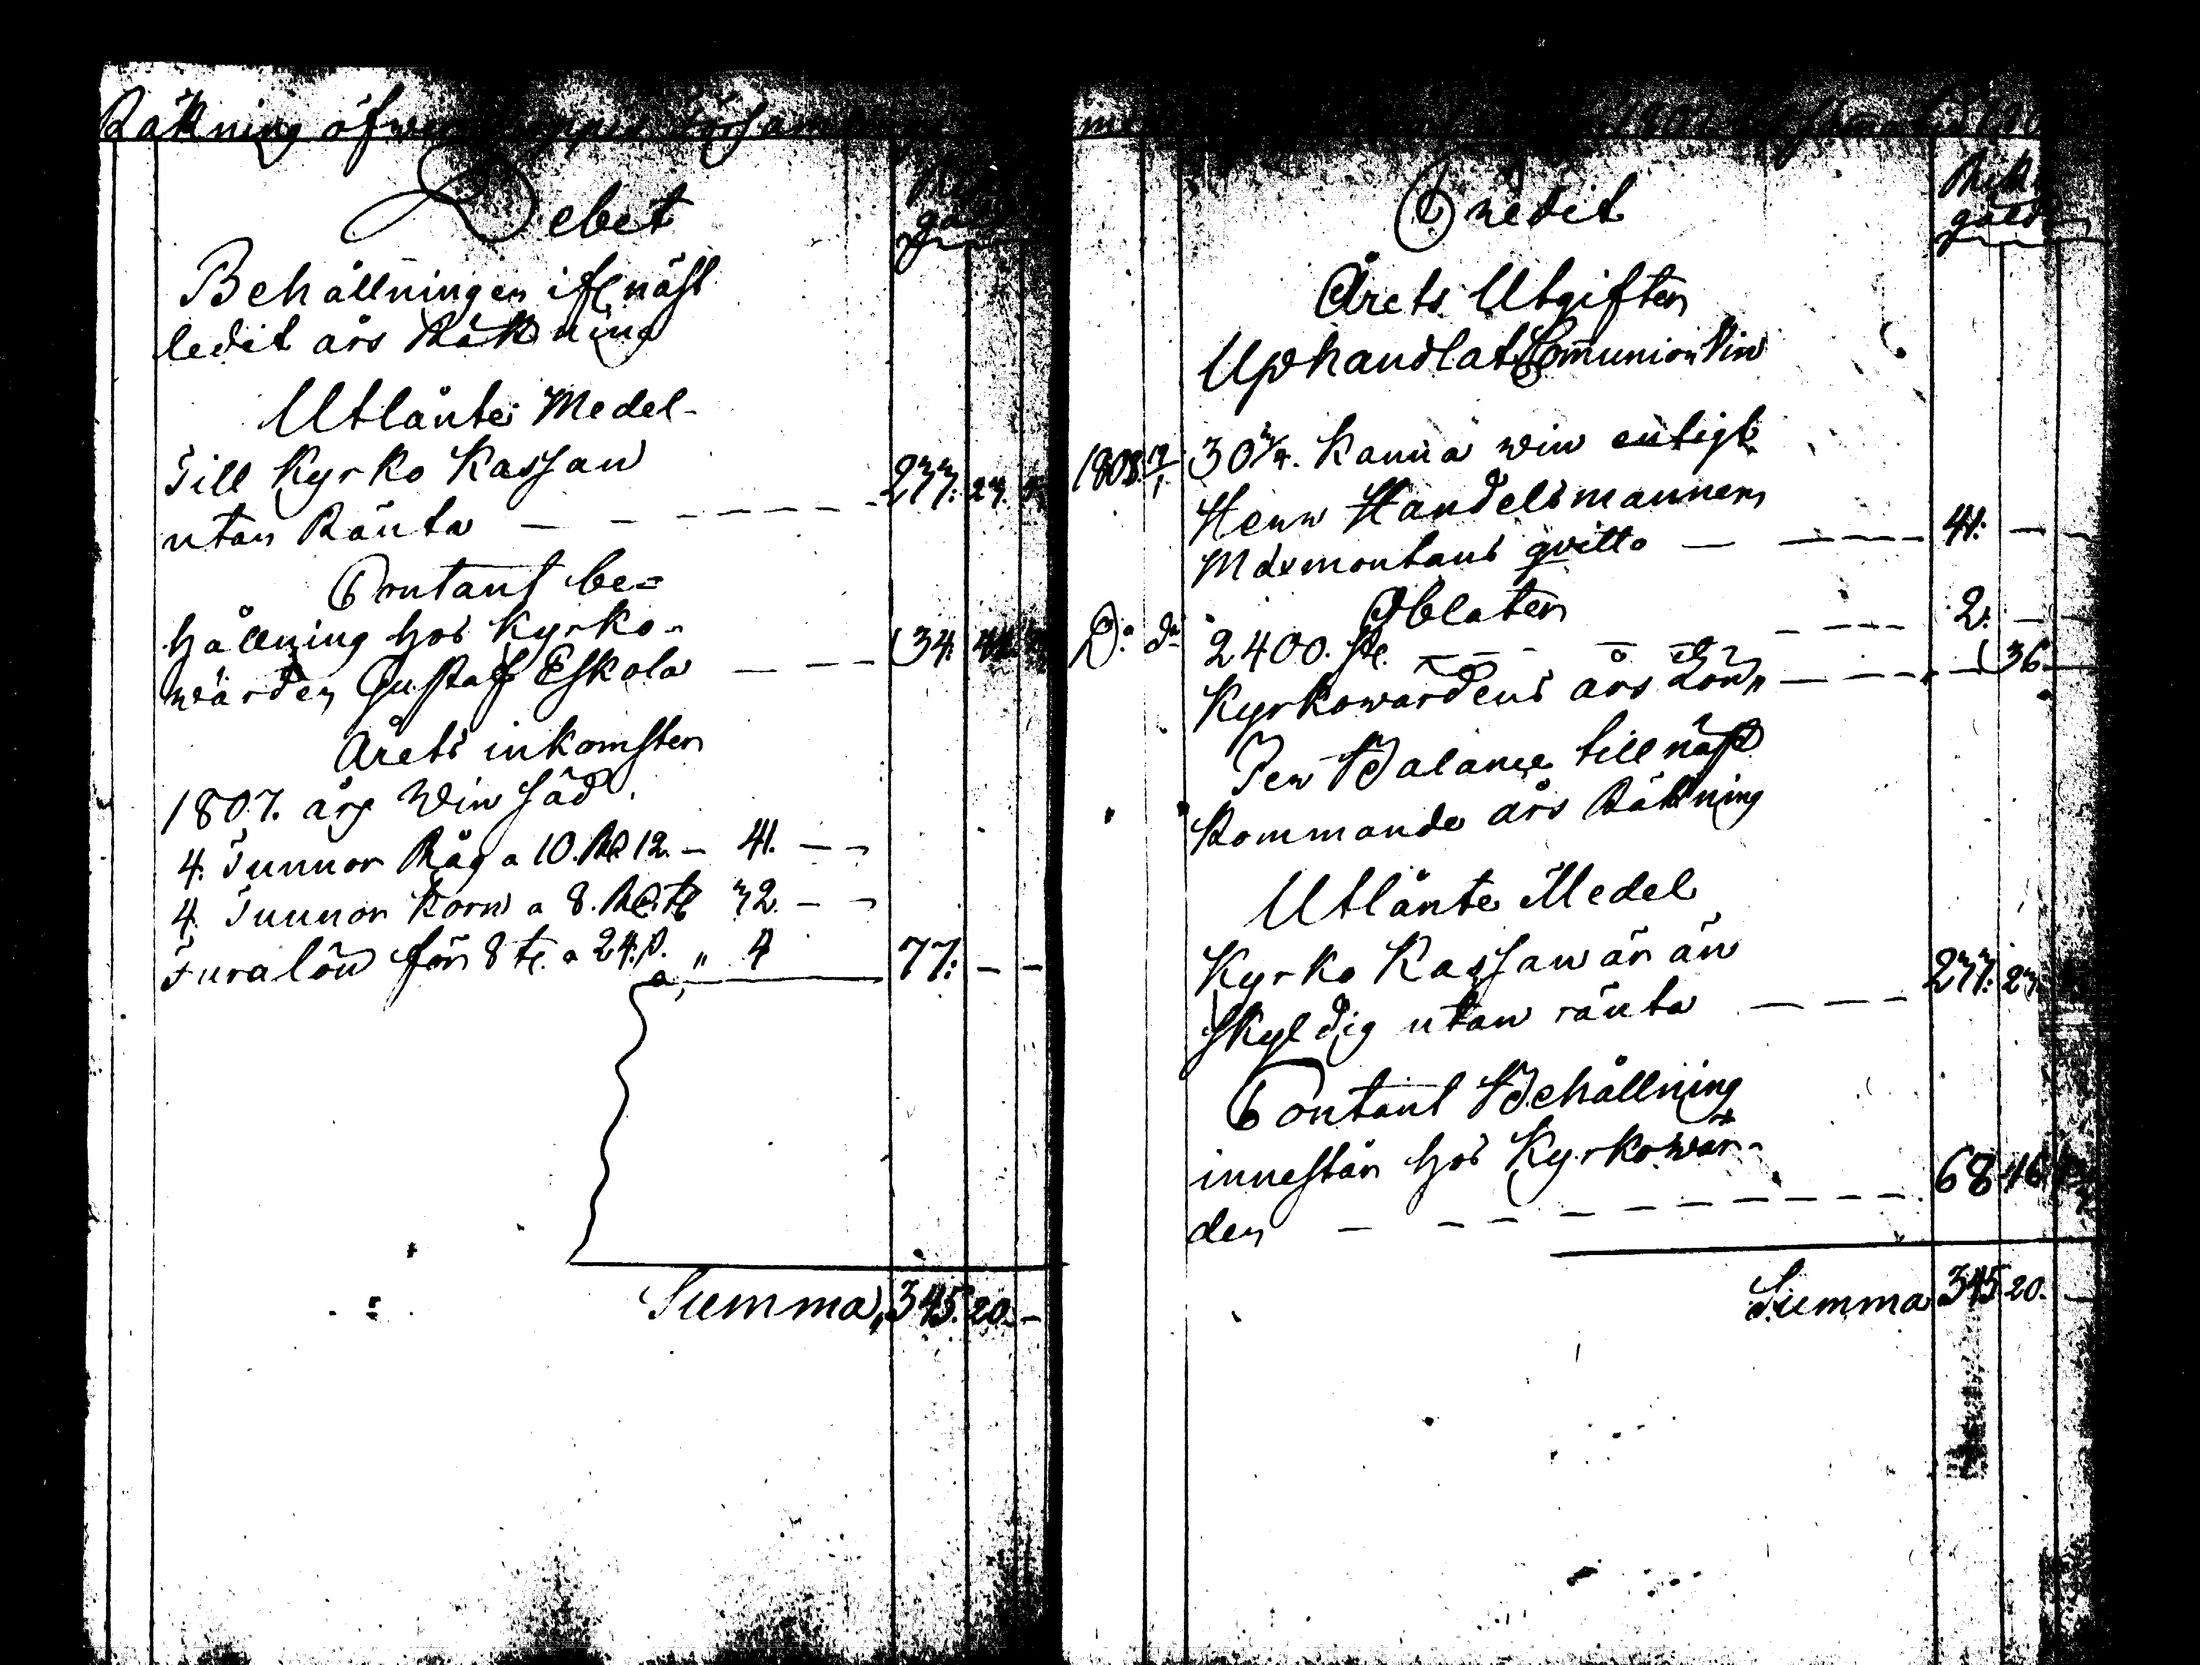 Räkning öfwer
Debet
Behållningen ifl näst
ledit års Räkning
Utlänte Medel
Till Kyrko Kassan
utan Ränta — — — — — 233: 23.
Contant be=
hållning hos Kyrko-
wärden Gustaf Eskola — — — 34.
Årets inkomster
1807. års Win säd.
4. Tunnor Råg a 10. Rd 12. — 41. — —
4. Tunnor Korn a 8. Rd. t 32. — —
Furalön för 8 t. a 24. s. " 4
77: — —
Summa, 345. 20. —
Credit
Rik
gäld
Årets Utgifter
Uphandlat Communion Vin
1808 19/1 30 3/4. Kanna win enligt
Herr Handelsmannen
quitto — — — — 41: — —
Oblater
D:o d:o 2400. st. — — — — 2. —
Kyrkowärdens års Lön, — — — — 36
Per Balance till näst
kommande års Räkning
Utlänte Medel
Kyrko Kassan är än
skyldig utan ränta — — — 233: 23
Contant Behållning
innestår hos Kyrkowär-
den — — — — — — — — 68 46
Summa 345 20. —